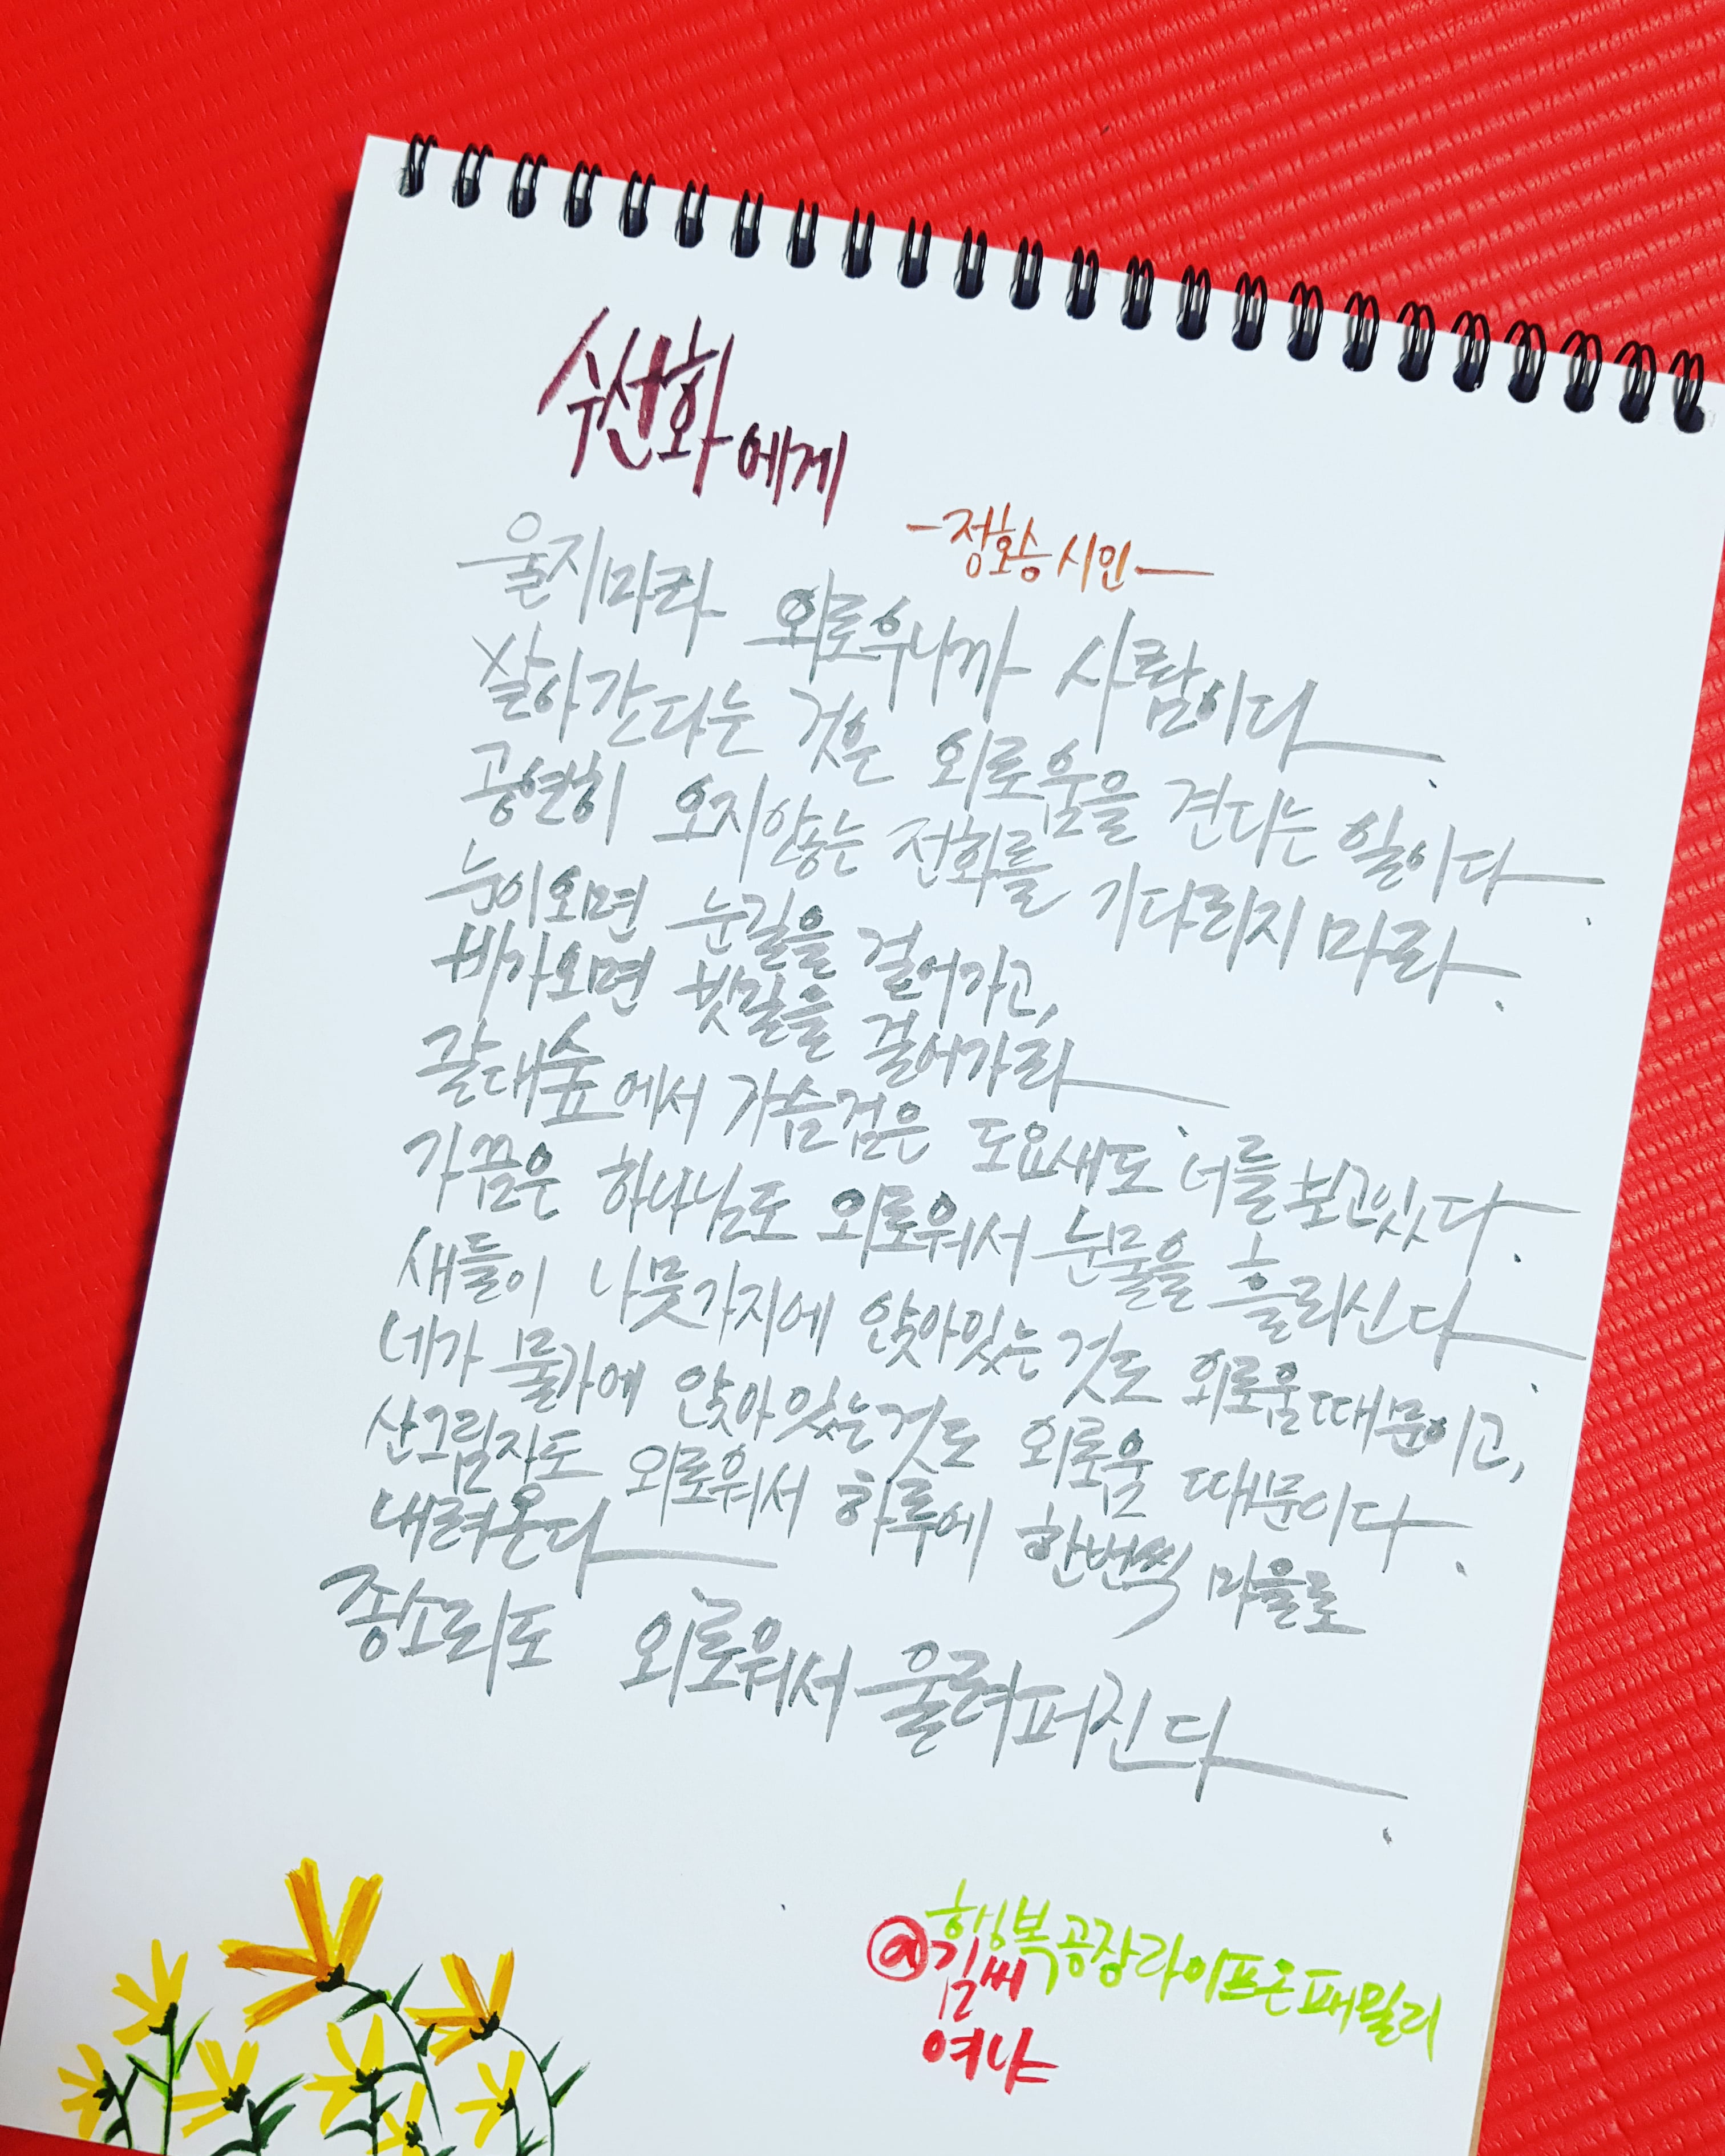 수선화에게
-정호승 시인-
울지마라 외로우니까 사람이다.
살아간다는 것은 외로움을 견디는 일이다.
공연히 오지않는 전화를 기다리지 마라.
눈이오면 눈길을 걸어가고,
비가오면 빗길을 걸어가라.
갈대숲에서 가슴검은 도요새도 너를 보고있다.
가끔은 하나님도 외로워서 눈물을 흘리신다.
새들이 나뭇가지에 앉아있는 것도 외로움때문이고,
네가 물가에 앉아있는것도 외로움 때문이다.
산그림자도 외로워서 하루에 한번씩 마을로
내려온다
종소리도 외로워서 울려퍼진다.
행복공장라이프온패밀리
@김씨
여냐